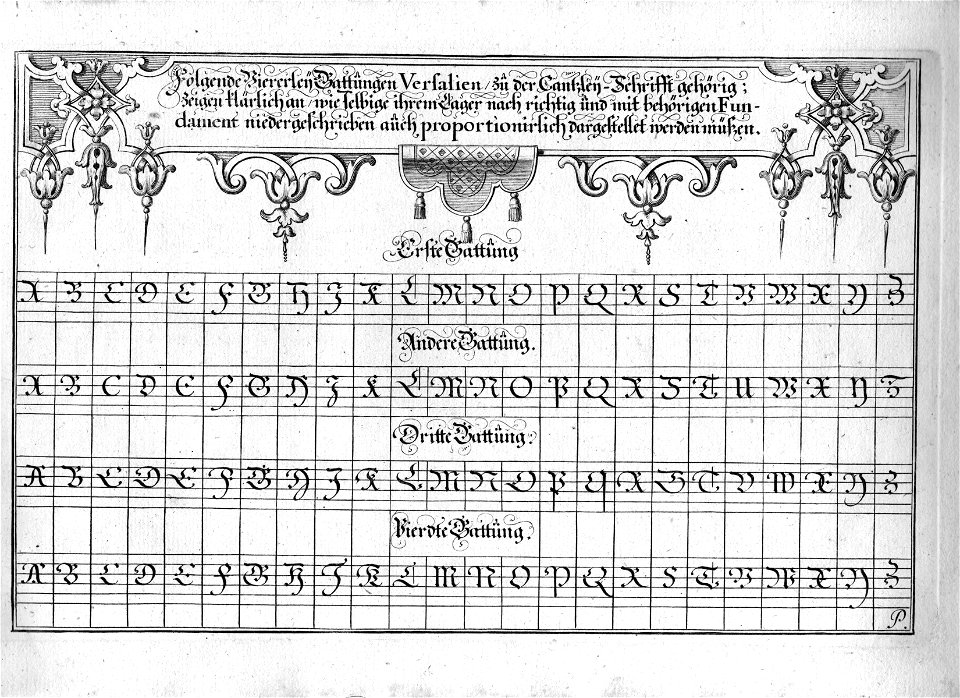 Folgende Viererleÿ Gattûngen Versalien / zû der Cantzleÿ-Schrifft gehörig ;
Zeigen klärlich an / wie selbige ihrem Lager nach richtig ûnd mit behörigen Fun-
dament niedergeschrieben aûch proportionirlich dargestellet werden müßen.
Erste Gattûng
A B C D E F G H J K L M N O P Q R S T V W X Y Z
Andere Gattûng.
A B C D E F G H J K L M N O P Q R S T U W X Y Z
Dritte Gattûng.
A B C D E F G H J K L M N O P Q R S T V W X Y Z
Vierdte Gattûng.
A B C D E F G H J K L M N O P Q R S T V W X Y Z
P.